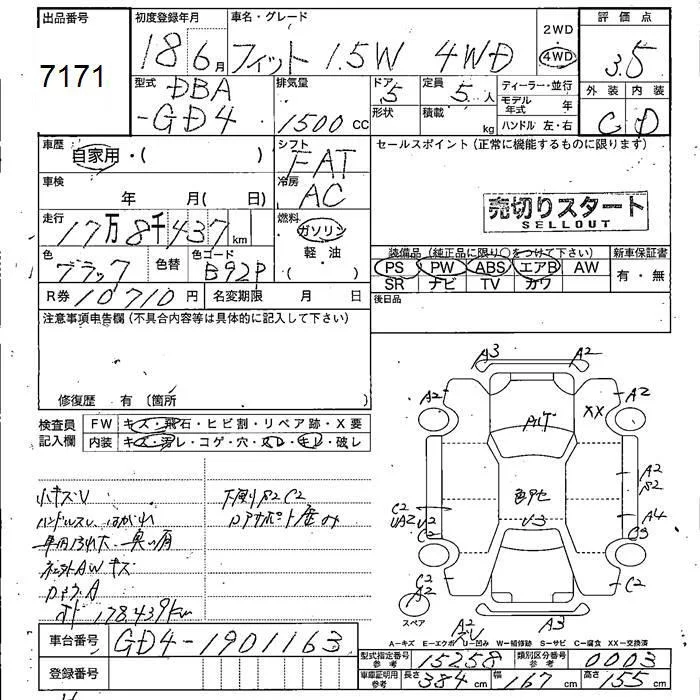 出品番号 初度登録年月 車名・グレード 2WD 評価点
7171 18 6月 フィット 1.5W 4WD 4WD 3.5
型式 DBA 排気量 ドア 5 定員 5人 ディーラー・並行 外装 内装
-GD4 1500 cc 形状 積載 kg モデル年式 年 C D
ハンドル 左・右
車歴 自家用・( ) シフト FAT セールスポイント(正常に機能するものに限ります)
車検 年 月( 日) 冷房 AC
売切りスタート
SELLOUT
走行 17万8千437km 燃料 ガソリン
軽・油
・( )
色 ブラック 色替 色コード B92P
装備品(純正品に限り○をつけて下さい) 新車保証書
PS PW ABS エアB AW 有・無
SR ナビ TV カワ
R券 10710円 名変期限 月 日 後日品
注意事項申告欄(不具合内容等は具体的に記入して下さい)
修復歴 有 〔箇所 〕
検査員記入欄 FW キズ・飛石・ヒビ割・リペア跡・X要
内装 キズ・汚レ・コゲ・穴・スレ・キレ・破レ
A3 A2
A2 XX A2
A2
A4
C2
C2 C3
C2 C2
A2
スペア
A2 A3
小キズU
ハンドルスレ
AWキズ
178.439km
A-キズ E-エクボ U-凹み W-補修跡 S-サビ C-腐食 XX-交換済
車台番号 GD4-1901163
型式指定番号 参考 15258 類別区分番号 参考 0003
登録番号 車庫証明用 参考 長さ 384 cm 幅 167 cm 高さ 155 cm